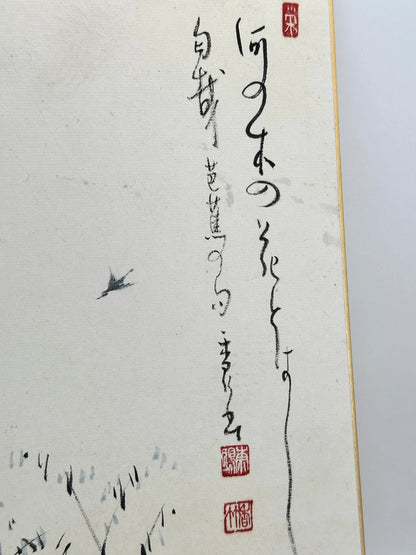 何の木の花とはし
匂哉 芭蕉の句